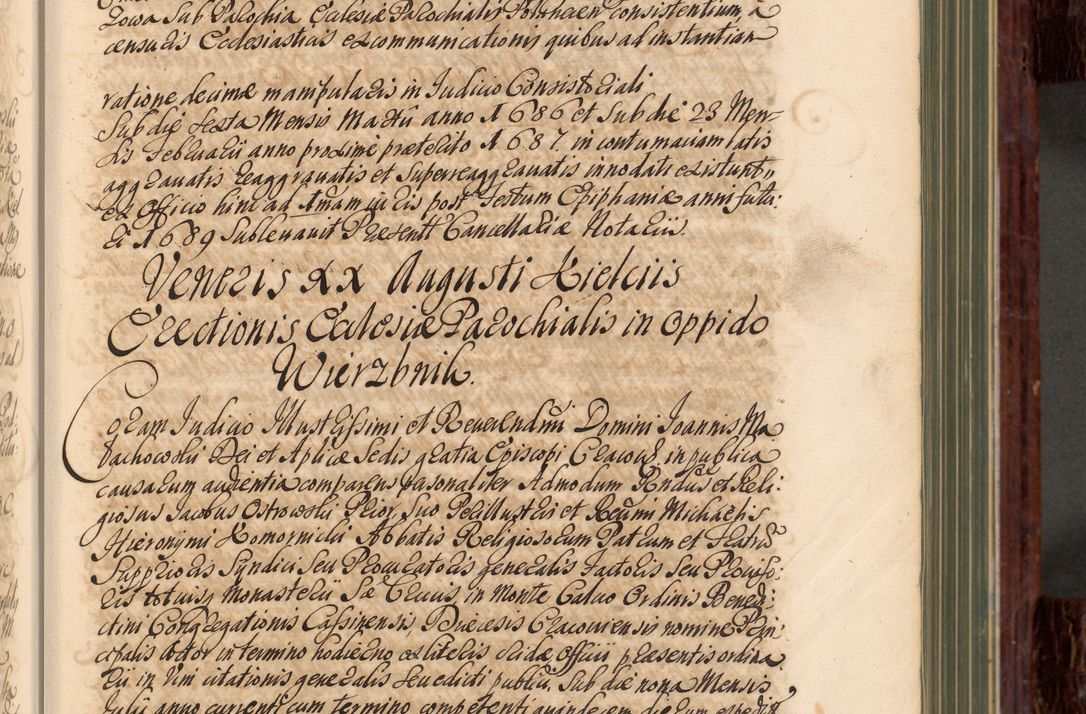 zowa Sub Parochia Ecclesiæ Parochialis consistentium, a
censuris Ecclesiasticis excommunicationis quibus ad instantiam
ratione decimæ manipularis in Judicio Consistoriali
Sub die sexta Mensis Martii anno 1686 et Sub die 23 Men-
sis Februarii anno proxime præterito 1687. in contumaciam latis
aggravatis reaggravatis et Superreaggravatis innodati existunt,,
ex Officio hinc ad 1mam juris post Festum Epiphaniæ anni futu:
ri 1689 Sublevavit Præsentt Cancellariæ Notarius.
Veneris XX Augusti Kielciis
Erectionis Ecclesiæ Parochialis in oppido
Wierzbnik.
Coram Judicio Illustrissimi et Reverendmi Domini Joannis Ma
łachowski Dei et Aplicæ Sedis gratia Episcopi Cracovn. in publica
causarum audientia comparens personaliter Admodum Rndus et Reli:
giosus Jacobus Ostrowski Prior, Suo Perillustris et Reumi Michaelis
Hieronymi Komornicki Abbatis Religiosorum Patrum et Fratrum
Supprioris Syndici Seu Procuratoris generalis Factoris Seu Proviso:
ris totius Monasterii Sæ Crucis in Monte Calvo Ordinis Benedi:
ctini Congregationis Cassinensis, Diæcesis Cracoviensis nomine Prin:
cipalis Actor in termino hodierno ex literis Officii præsentis ordina
rii in Vim citationis generalis Seu edicti publici. Sub die nona Mensis
Julii anno currenti cum termino competenti quindecem dierum expedit